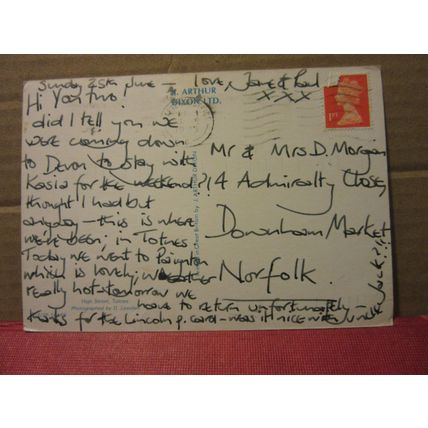 Sunday 25th June — Love, Jane & Paul
x x x
Hi You two!
did I tell you we
were coming down
to Devon to stay with
Kasia for the weekend?!
thought I had but
anyway – this is where
we've been; in Totnes
Today we went to Paignton
which is lovely; weather
really hot – tomorrow we
have to return unfortunately –
thanks for the Lincoln p. card – was it nice with uncle Jack?!!
J. ARTHUR
DIXON LTD.
1ST
Mr & Mrs D. Morgan
14 Admiralty Close,
Downham Market
Norfolk.
High Street, Totnes
Photographed by D.